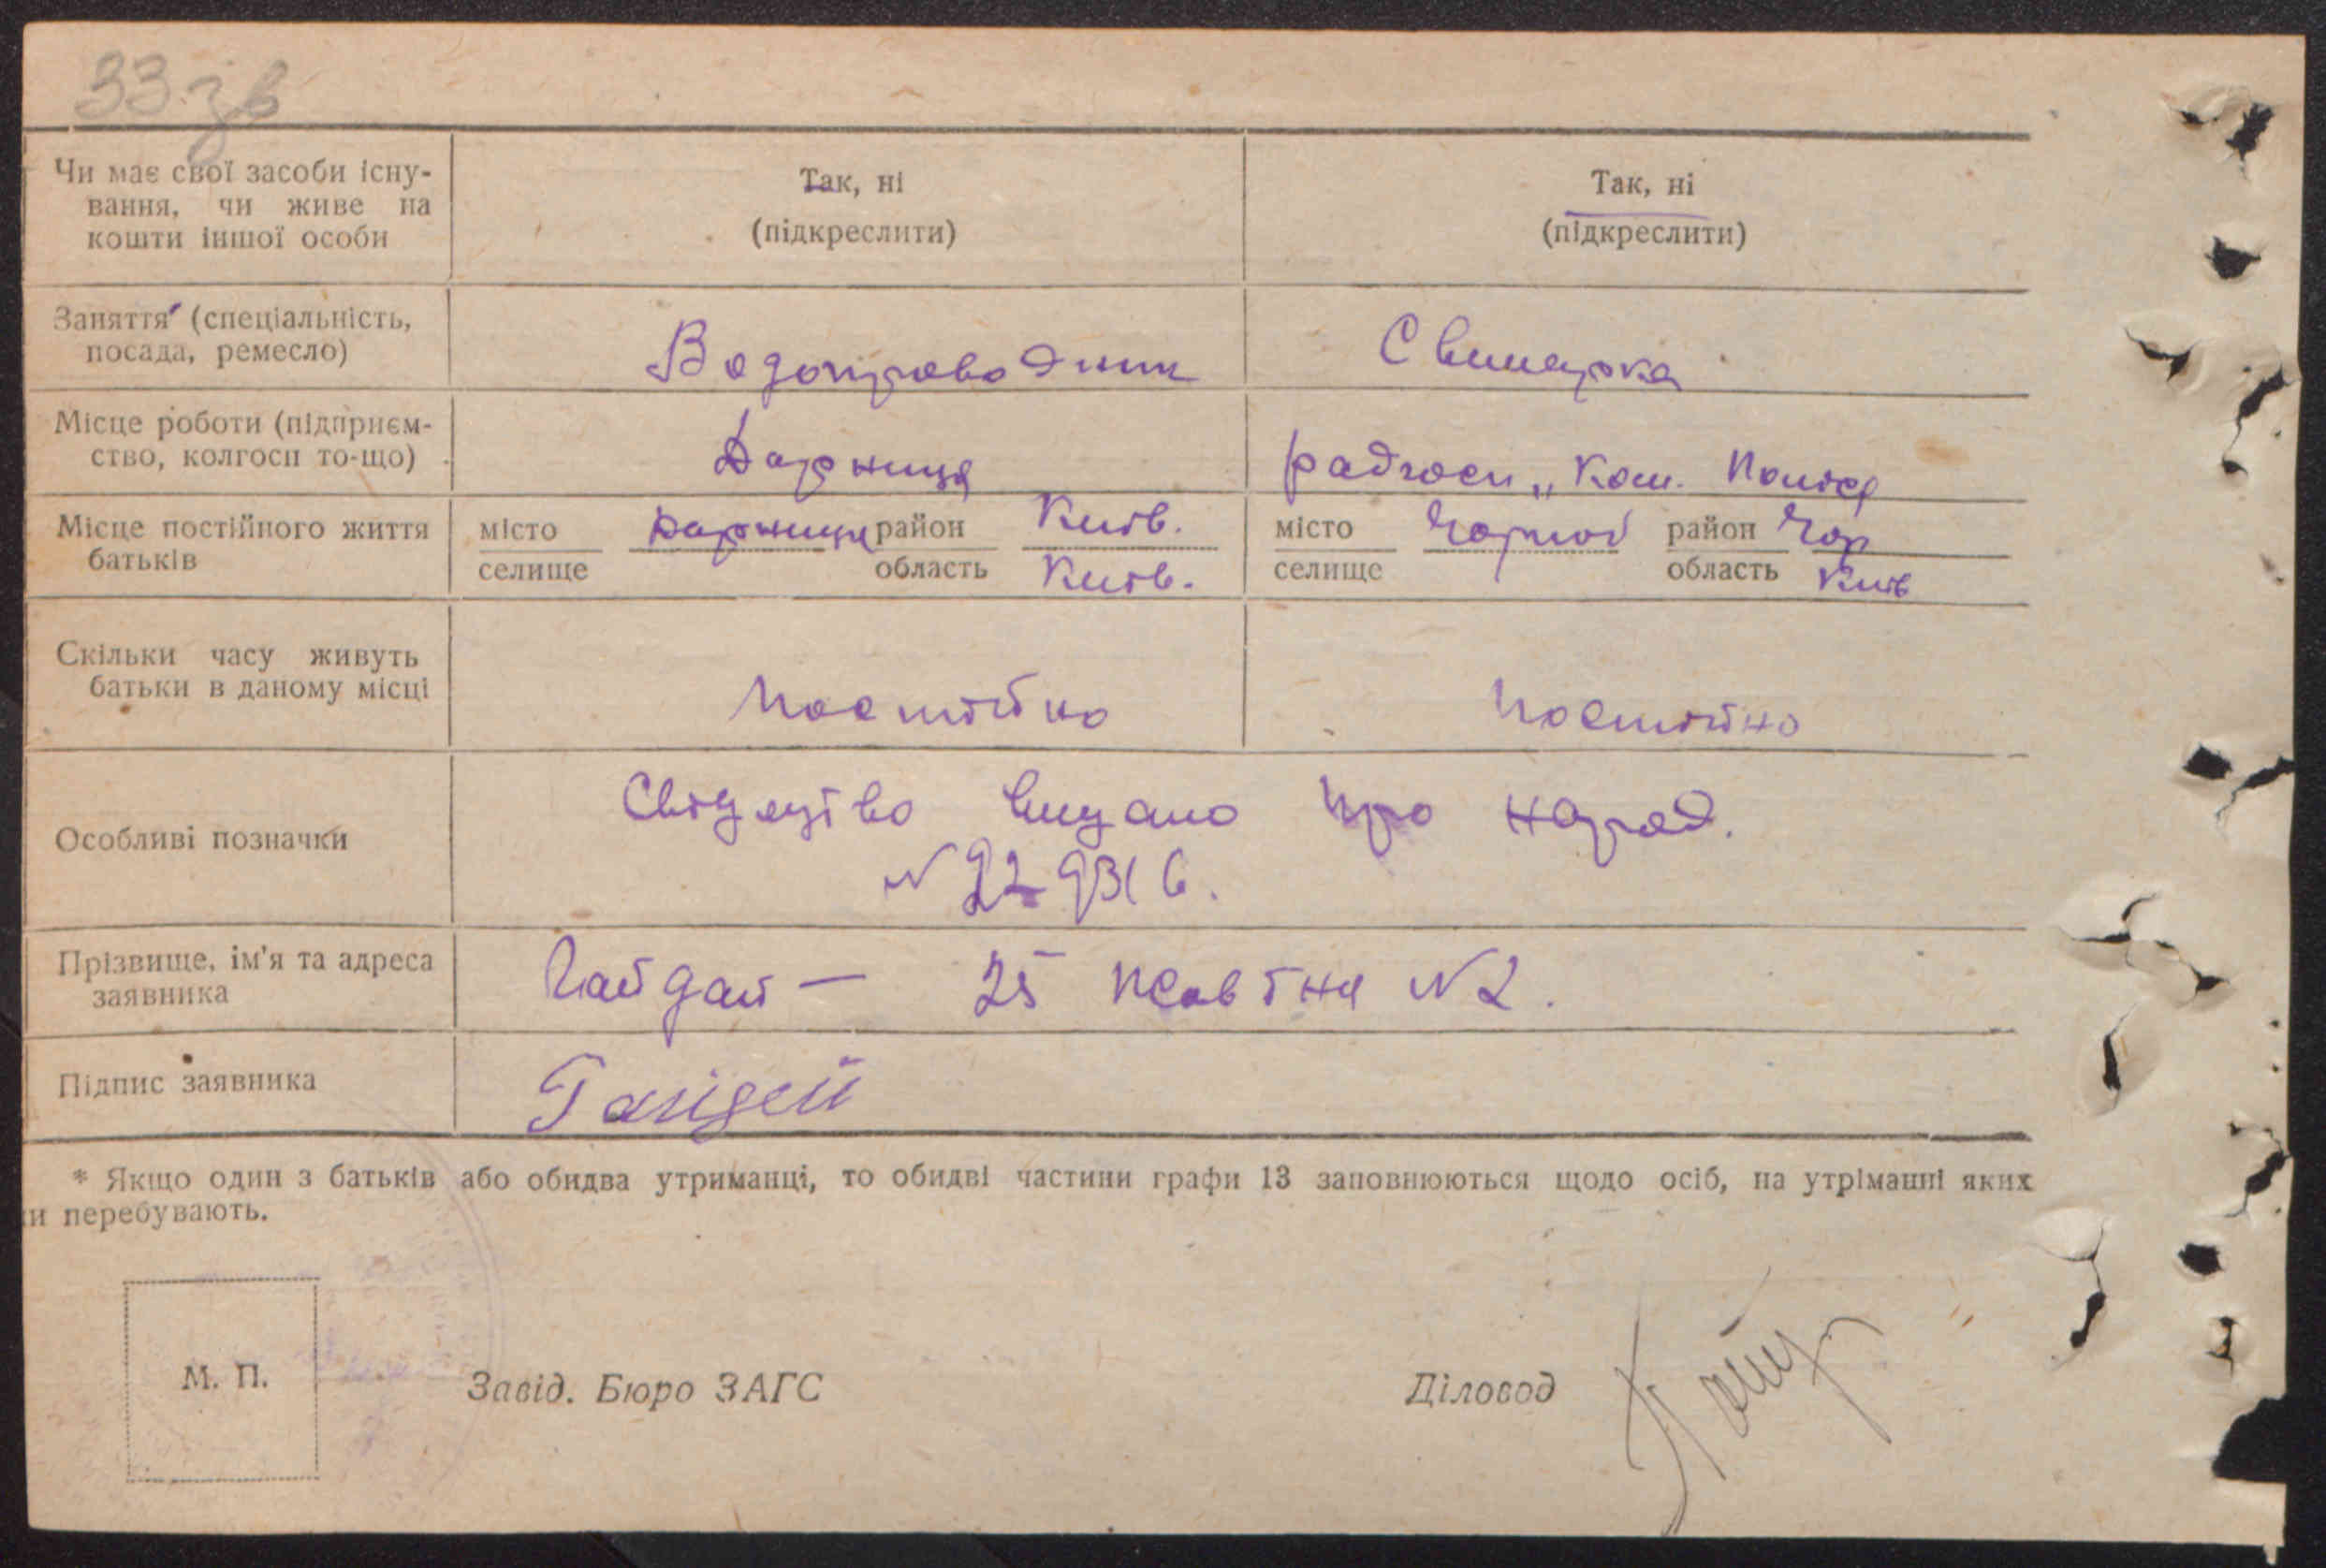 33 зв
Чи має свої засоби існу-
вання, чи живе на
кошти іншої особи
Так, ні
(підкреслити)
Так, ні
(підкреслити)
Заняття (спеціальність,
посада, ремесло)
Водопроводник
Свинарка
Місце роботи (підприєм-
ство, колгосп то-що)
Дарниця
радгосп „Ком.
Місце постійного життя
батьків
місто
селище
Дарниця
район Київ.
область Київ.
місто
селище
район Чор
область Київ
Скільки часу живуть
батьки в даному місці
Постійно
Постійно
Особливі позначки
Свідуцтво видано про народ.
Прізвище, ім'я та адреса
заявника
Гайдай — 25 жовтня №2.
Підпис заявника
Гайдай
* Якщо один з батьків або обидва утриманці, то обидві частини графи 13 заповнюються щодо осіб, на утріманні яких
и перебувають.
М. П.
Завід. Бюро ЗАГС
Діловод